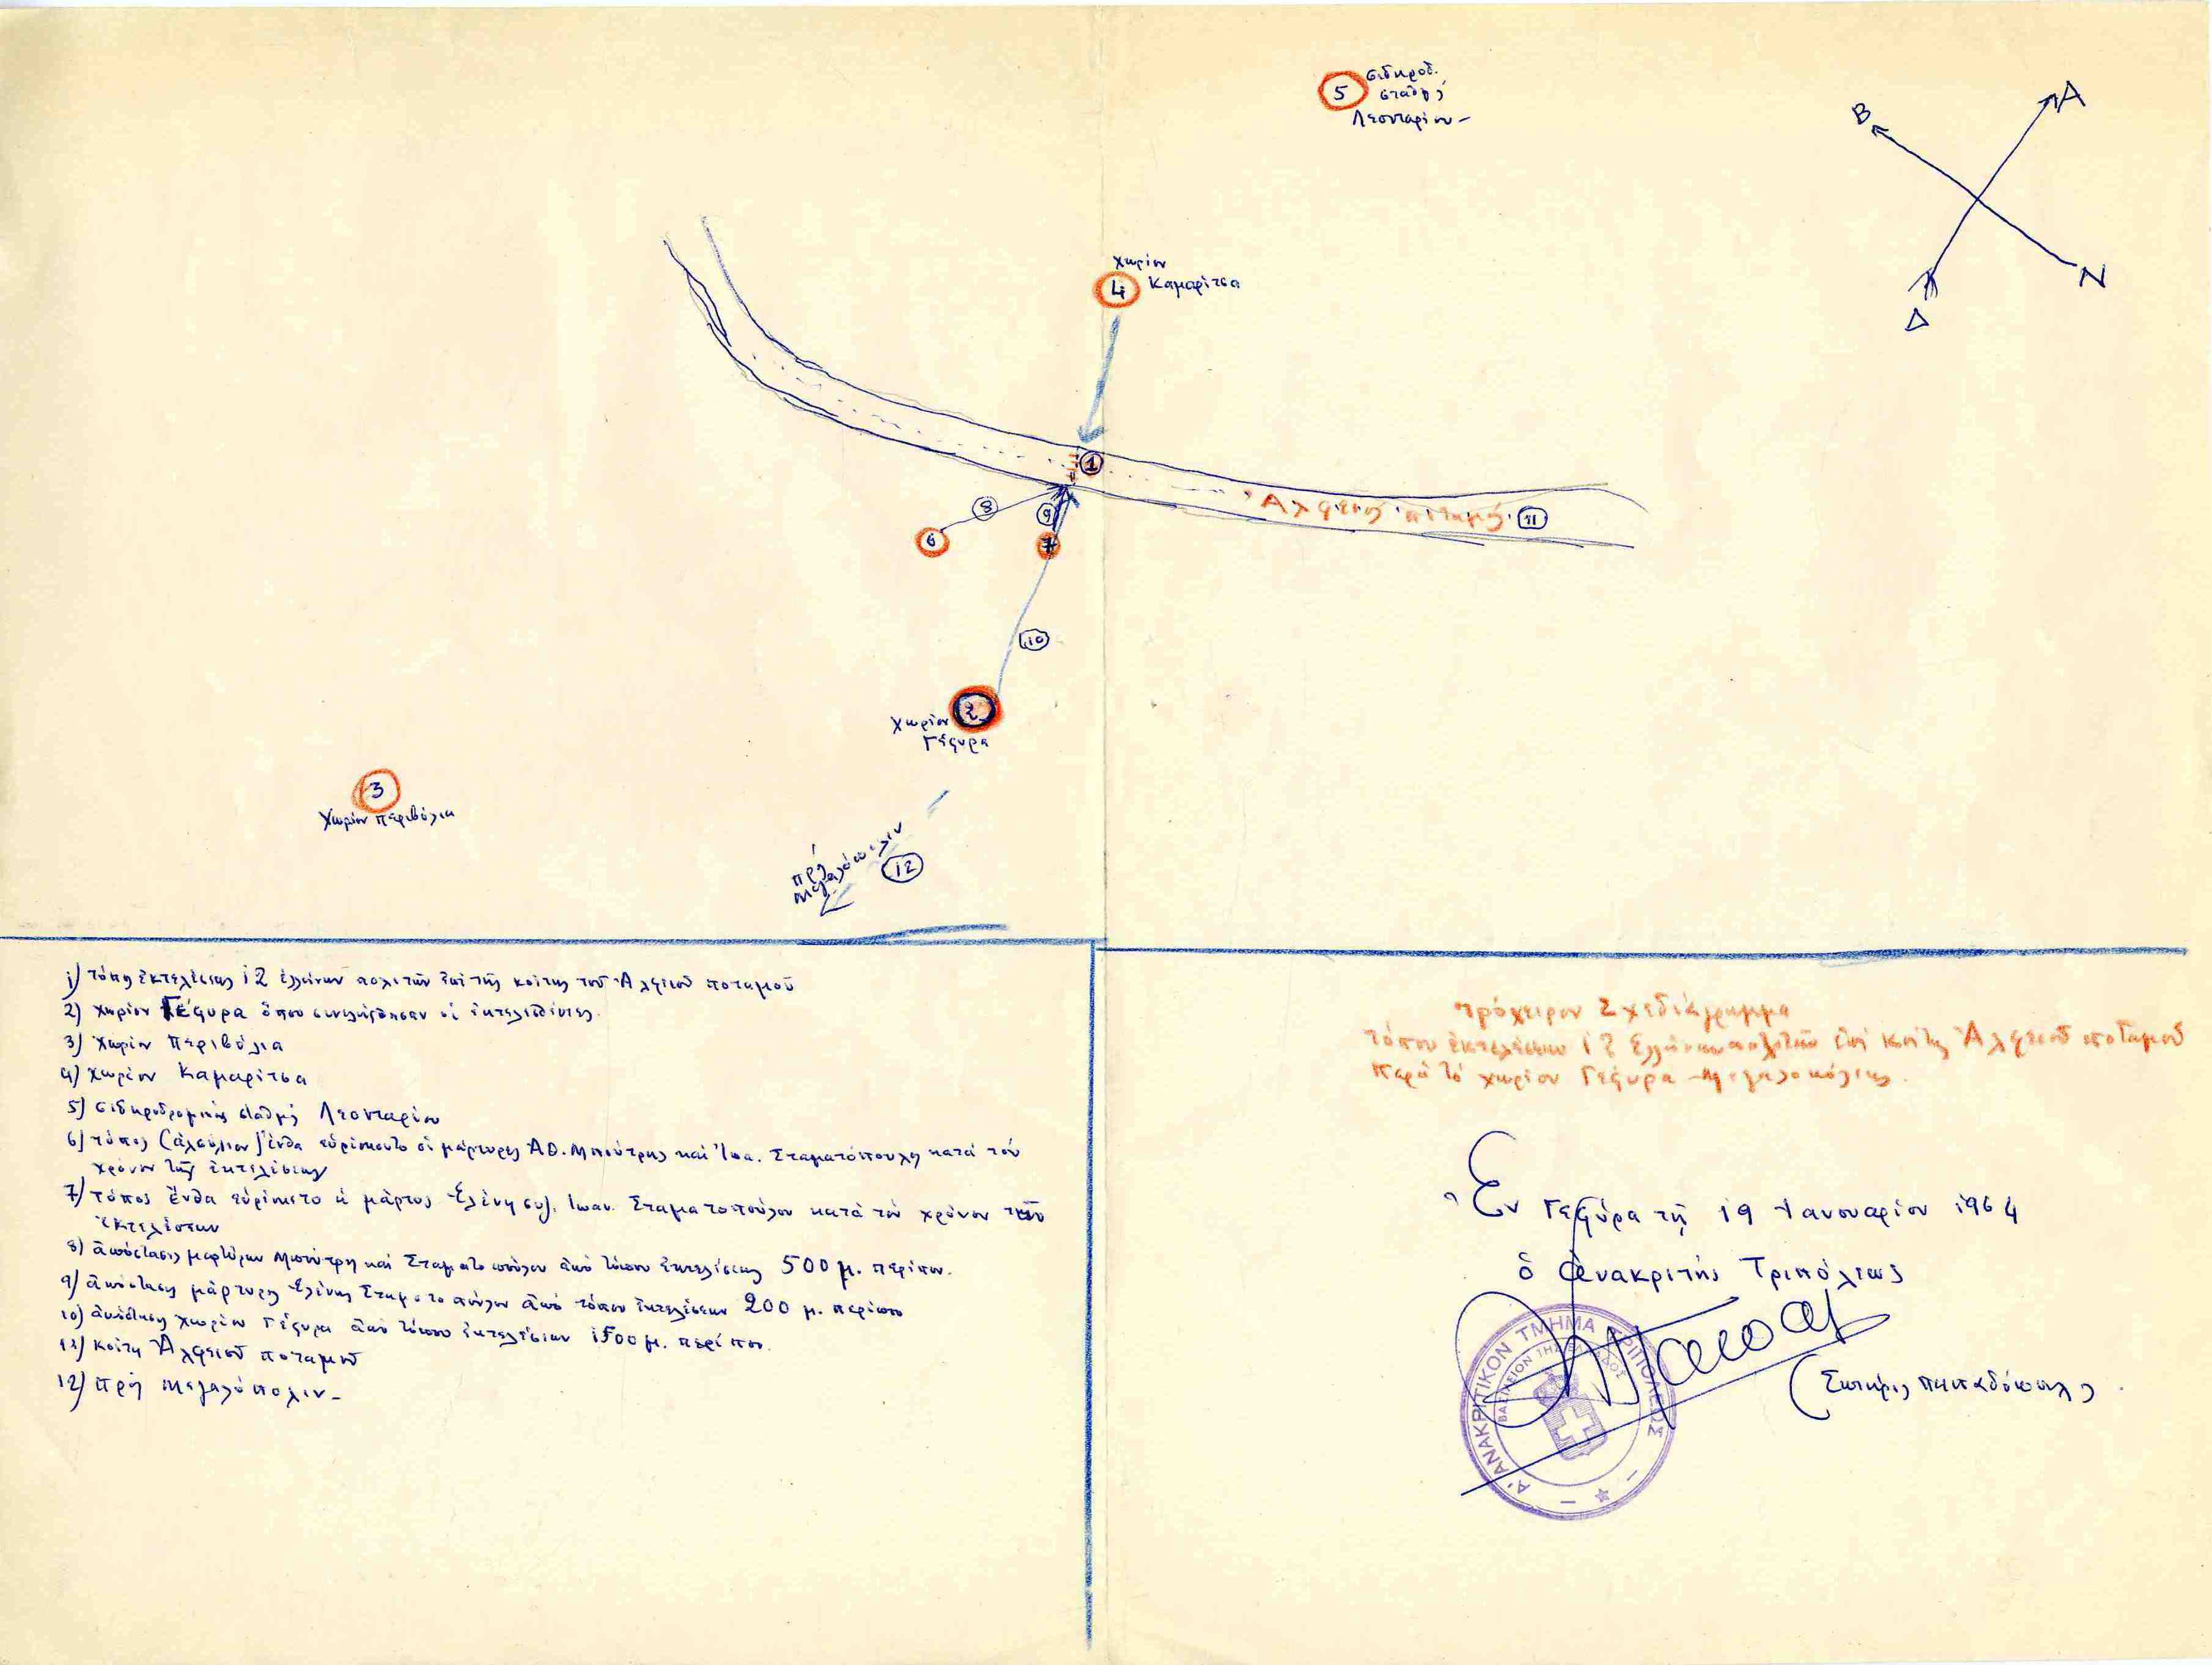 σιδηροδ.
5 σταθμός
Λεονταρίου -
Α
Β
Ν
Δ
χωρίον
4 Καμαρίτσα
1
Ἀλφειός ποταμός 11
8
9
6
7
10
2
χωρίον
Γέφυρα
3
Χωρίον Περιβόλια
πρός
Μεγαλόπολιν
12
1) τόπος ἐκτελέσεως 12 ἑλλήνων πολιτῶν ἐπί τῆς κοίτης τοῦ Ἀλφειοῦ ποταμοῦ
2) χωρίον Γέφυρα ὅπου συνελήφθησαν οἱ ἐκτελεσθέντες.
3) Χωρίον Περιβόλια
4) χωρίον Καμαρίτσα
5) σιδηροδρομικός σταθμός Λεονταρίου
6) τόπος ἔνθα εὑρίσκοντο οἱ μάρτυρες Ἀθ. Μπούτρης καί Ἰωα. Σταματόπουλος κατά τόν
χρόνον τῆς ἐκτελέσεως
7) τόπος ἔνθα εὑρίσκετο ἡ μάρτυς Ἑλένη συζ. Ἰωαν. Σταματοπούλου κατά τόν χρόνον τῶν
ἐκτελέσεων
8) ἀπόστασις μαρτύρων Μπούτρη καί Σταματοπούλου ἀπό τόπου ἐκτελέσεως 500 μ. περίπου.
9) ἀπόστασις μάρτυρος Ἑλένης Σταματοπούλου ἀπό τόπου ἐκτελέσεων 200 μ. περίπου
10) ἀπόστασις χωρίου Γέφυρα ἀπό τόπου ἐκτελέσεων 1500 μ. περίπου.
11) κοίτη Ἀλφειοῦ ποταμοῦ
12) Πρός Μεγαλόπολιν -
Πρόχειρον Σχεδιάγραμμα
τόπου ἐκτελέσεως 12 Ἑλλήνων πολιτῶν ἐπί κοίτης Ἀλφειοῦ ποταμοῦ
παρά τό χωρίον Γέφυρα - Μεγαλοπόλεως.
Ἐν Γεφύρα τῇ 19 Ἰανουαρίου 1964
ὁ Ἀνακριτής Τριπόλεως
Α' ΑΝΑΚΡΙΤΙΚΟΝ ΤΜΗΜΑ ΤΡΙΠΟΛΕΩΣ
ΒΑΣΙΛΕΙΟΝ ΤΗΣ ΕΛΛΑΔΟΣ
(Σωτήρις Παπαδόπουλος